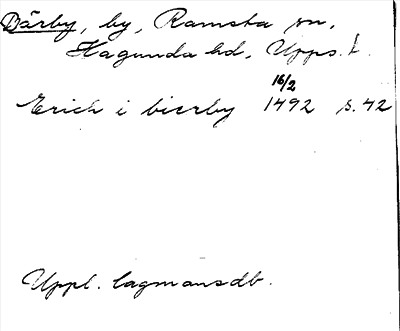 Bärby, by, Ramsta sn,
Hagunda hd, Upps. l.
16/2
Erich i bierby 1492 s. 42
Uppl. lagmansdb.